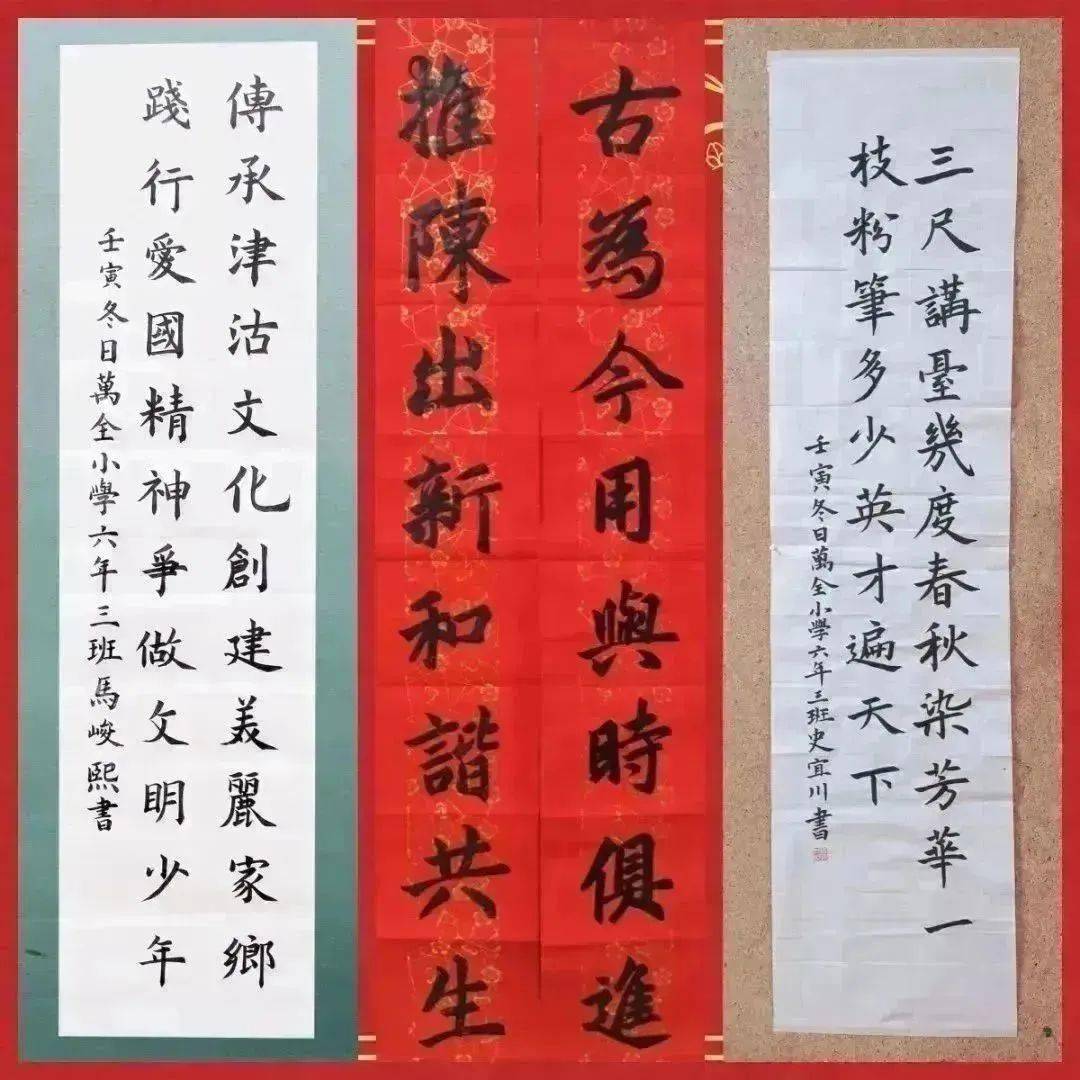 三尺講臺幾度春秋染芳華一
枝粉筆多少英才遍天下
壬寅冬日萬全小學六年三班史宜川書
古為今用與時俱進
推陳出新和諧共生
傳承津沽文化創建美麗家鄉
踐行愛國精神爭做文明少年
壬寅冬日萬全小學六年三班馬峻熙書